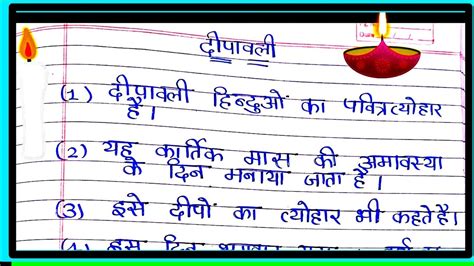 दीपावली
(1) दीपावली हिन्दुओं का पवित्र त्योहार
है।
(2) यह कार्तिक मास की अमावस्या
के दिन मनाया जाता है।
(3) इसे दीपों का त्योहार भी कहते है।